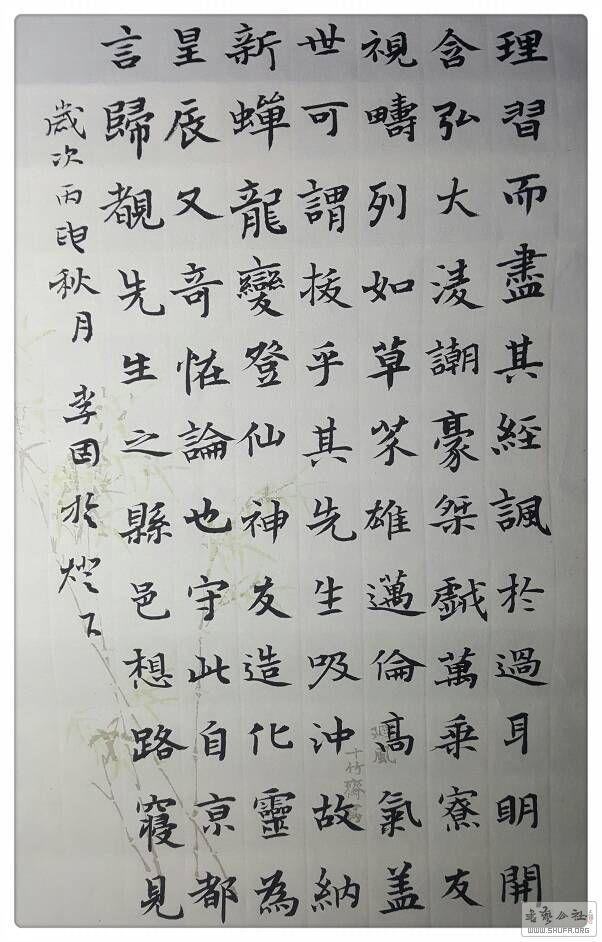 理習而盡其經諷於過耳明開
含弘大淩謿豪桀戲萬乘寮友
視疇列如草芥雄邁倫高氣盖
世可謂拔乎其先生吸沖故納
新蟬龍變登仙神友造化靈為
星辰又奇恠論也守此自京都
言歸覩先生之縣邑想路寢見
歲次丙申秋月 李於燈下
十竹齋寫
WWW.SHUFA.ORG